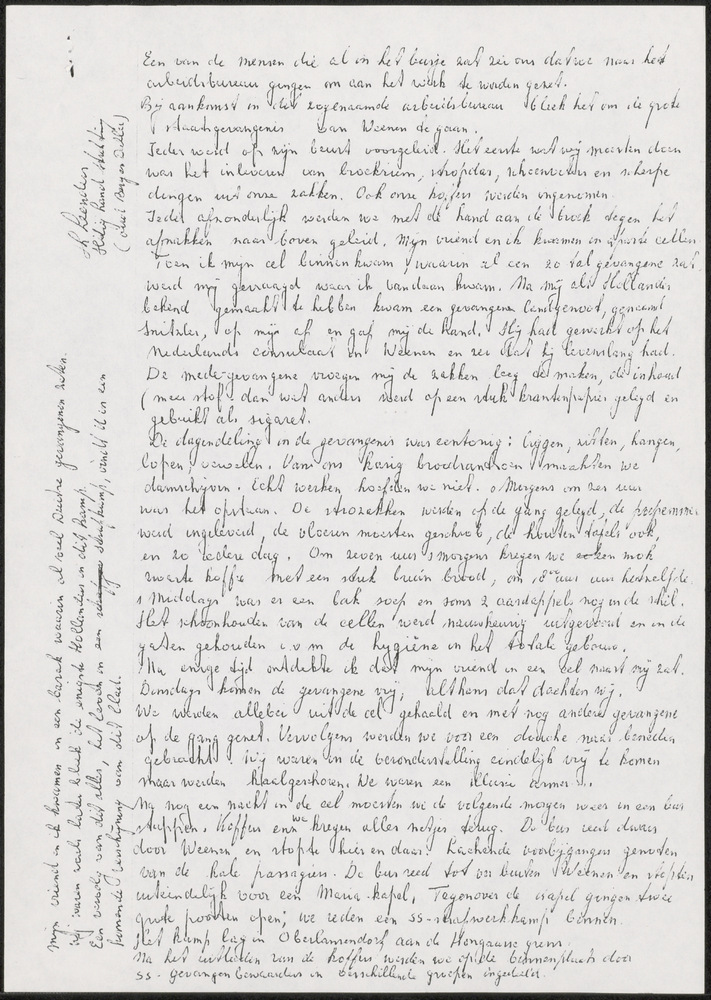 Een van de mensen die al in het busje zat zei ons dat we naar het
arbeidsbureau gingen om aan het werk te worden gezet.
Bij aankomst in dit zogenaamde arbeidsbureau bleek het om de grote
staatsgevangenis van Weenen te gaan.
Ieder werd op zijn beurt voorgeleid. Het eerste wat wij moesten doen
was het inleveren van broekriem, stropdas, schoenveters en scherpe
dingen uit onze zakken. Ook onze koffers werden ingenomen.
Ieder afzonderlijk werden we met de hand aan de broek tegen het
afzakken naar boven geleid. Mijn vriend en ik kwamen in aparte cellen
Toen ik mijn cel binnen kwam, waarin al een 20 tal gevangene zat
werd mij gevraagd waar ik vandaan kwam. Na mij als Hollander
bekend gemaakt te hebben kwam een gevangene landgenoot, genaamd
Snitsler, op mij af en gaf mij de hand. Hij had gewerkt op het
Nederlands consulaat in Weenen en zei dat hij levenslang had.
De mede-gevangene vroegen mij de zakken leeg te maken, de inhoud
(meer stof dan wat anders werd op een stuk krantenpapier gelegd en
gebruikt als sigaret.
De dagindeling in de gevangenis was eentonig: liggen, zitten, hangen,
lopen, vervelen. Van ons karig broodrantsoen maakten we
damschijven. Echt werken hoefden we niet. s Morgens om zes uur
was het opstaan. De strozakken werden op de gang gelegd, de
werd ingeleverd, de vloeren moesten geschrobd, de houten tafels ook,
en zo iedere dag. Om zeven uur s morgens kregen we een mok
zwarte koffie met een stuk bruin brood, om uur hetzelfde.
s Middags was er een bak soep en soms 2 aardappels nog in de schil.
Het schoonhouden van de cellen werd nauwkeurig uitgevoerd en in de
gaten gehouden i.v.m de hygiëne in het totale gebouw.
Na enige tijd ontdekte ik dat mijn vriend in een cel naast mij zat.
Dinsdags komen de gevangene vrij, althans dat dachten wij.
We werden allebei uit de cel gehaald en met nog andere gevangene
op de gang gezet. Vervolgens werden we voor een douche naar beneden
gebracht. Wij waren in de veronderstelling eindelijk vrij te komen
maar werden kaalgeschoren. We waren een illusie armer...
Na nog een nacht in de cel moesten we de volgende morgen weer in een bus
stappen. Koffers enz we kregen alles netjes terug. De bus reed dwars
door Weenen, en stopte hier en daar. Lachende voorbijgangers genoten
van de kale passagiers. De bus reed tot ver buiten Weenen en stopten
uiteindelijk voor een Maria-kapel. Tegenover de kapel gingen twee
grote poorten open; we reden een SS-strafwerkkamp binnen.
Het kamp lag in Oberlanzendorf aan de Hongaarse grens.
Na het uitladen van de koffers werden we op de binnenplaats door
SS-gevangen bewaarders in verschillende groepen ingedeeld.
Mijn vriend en ik kwamen in een barak waarin al veel Duitse gevangenen zaten.
Wij waren zoals later bleek de enigste Hollanders in dit kamp.
Een verslag van dit alles, het leven in een strafkamp, vindt U in een
komende verschijning van dit blad.